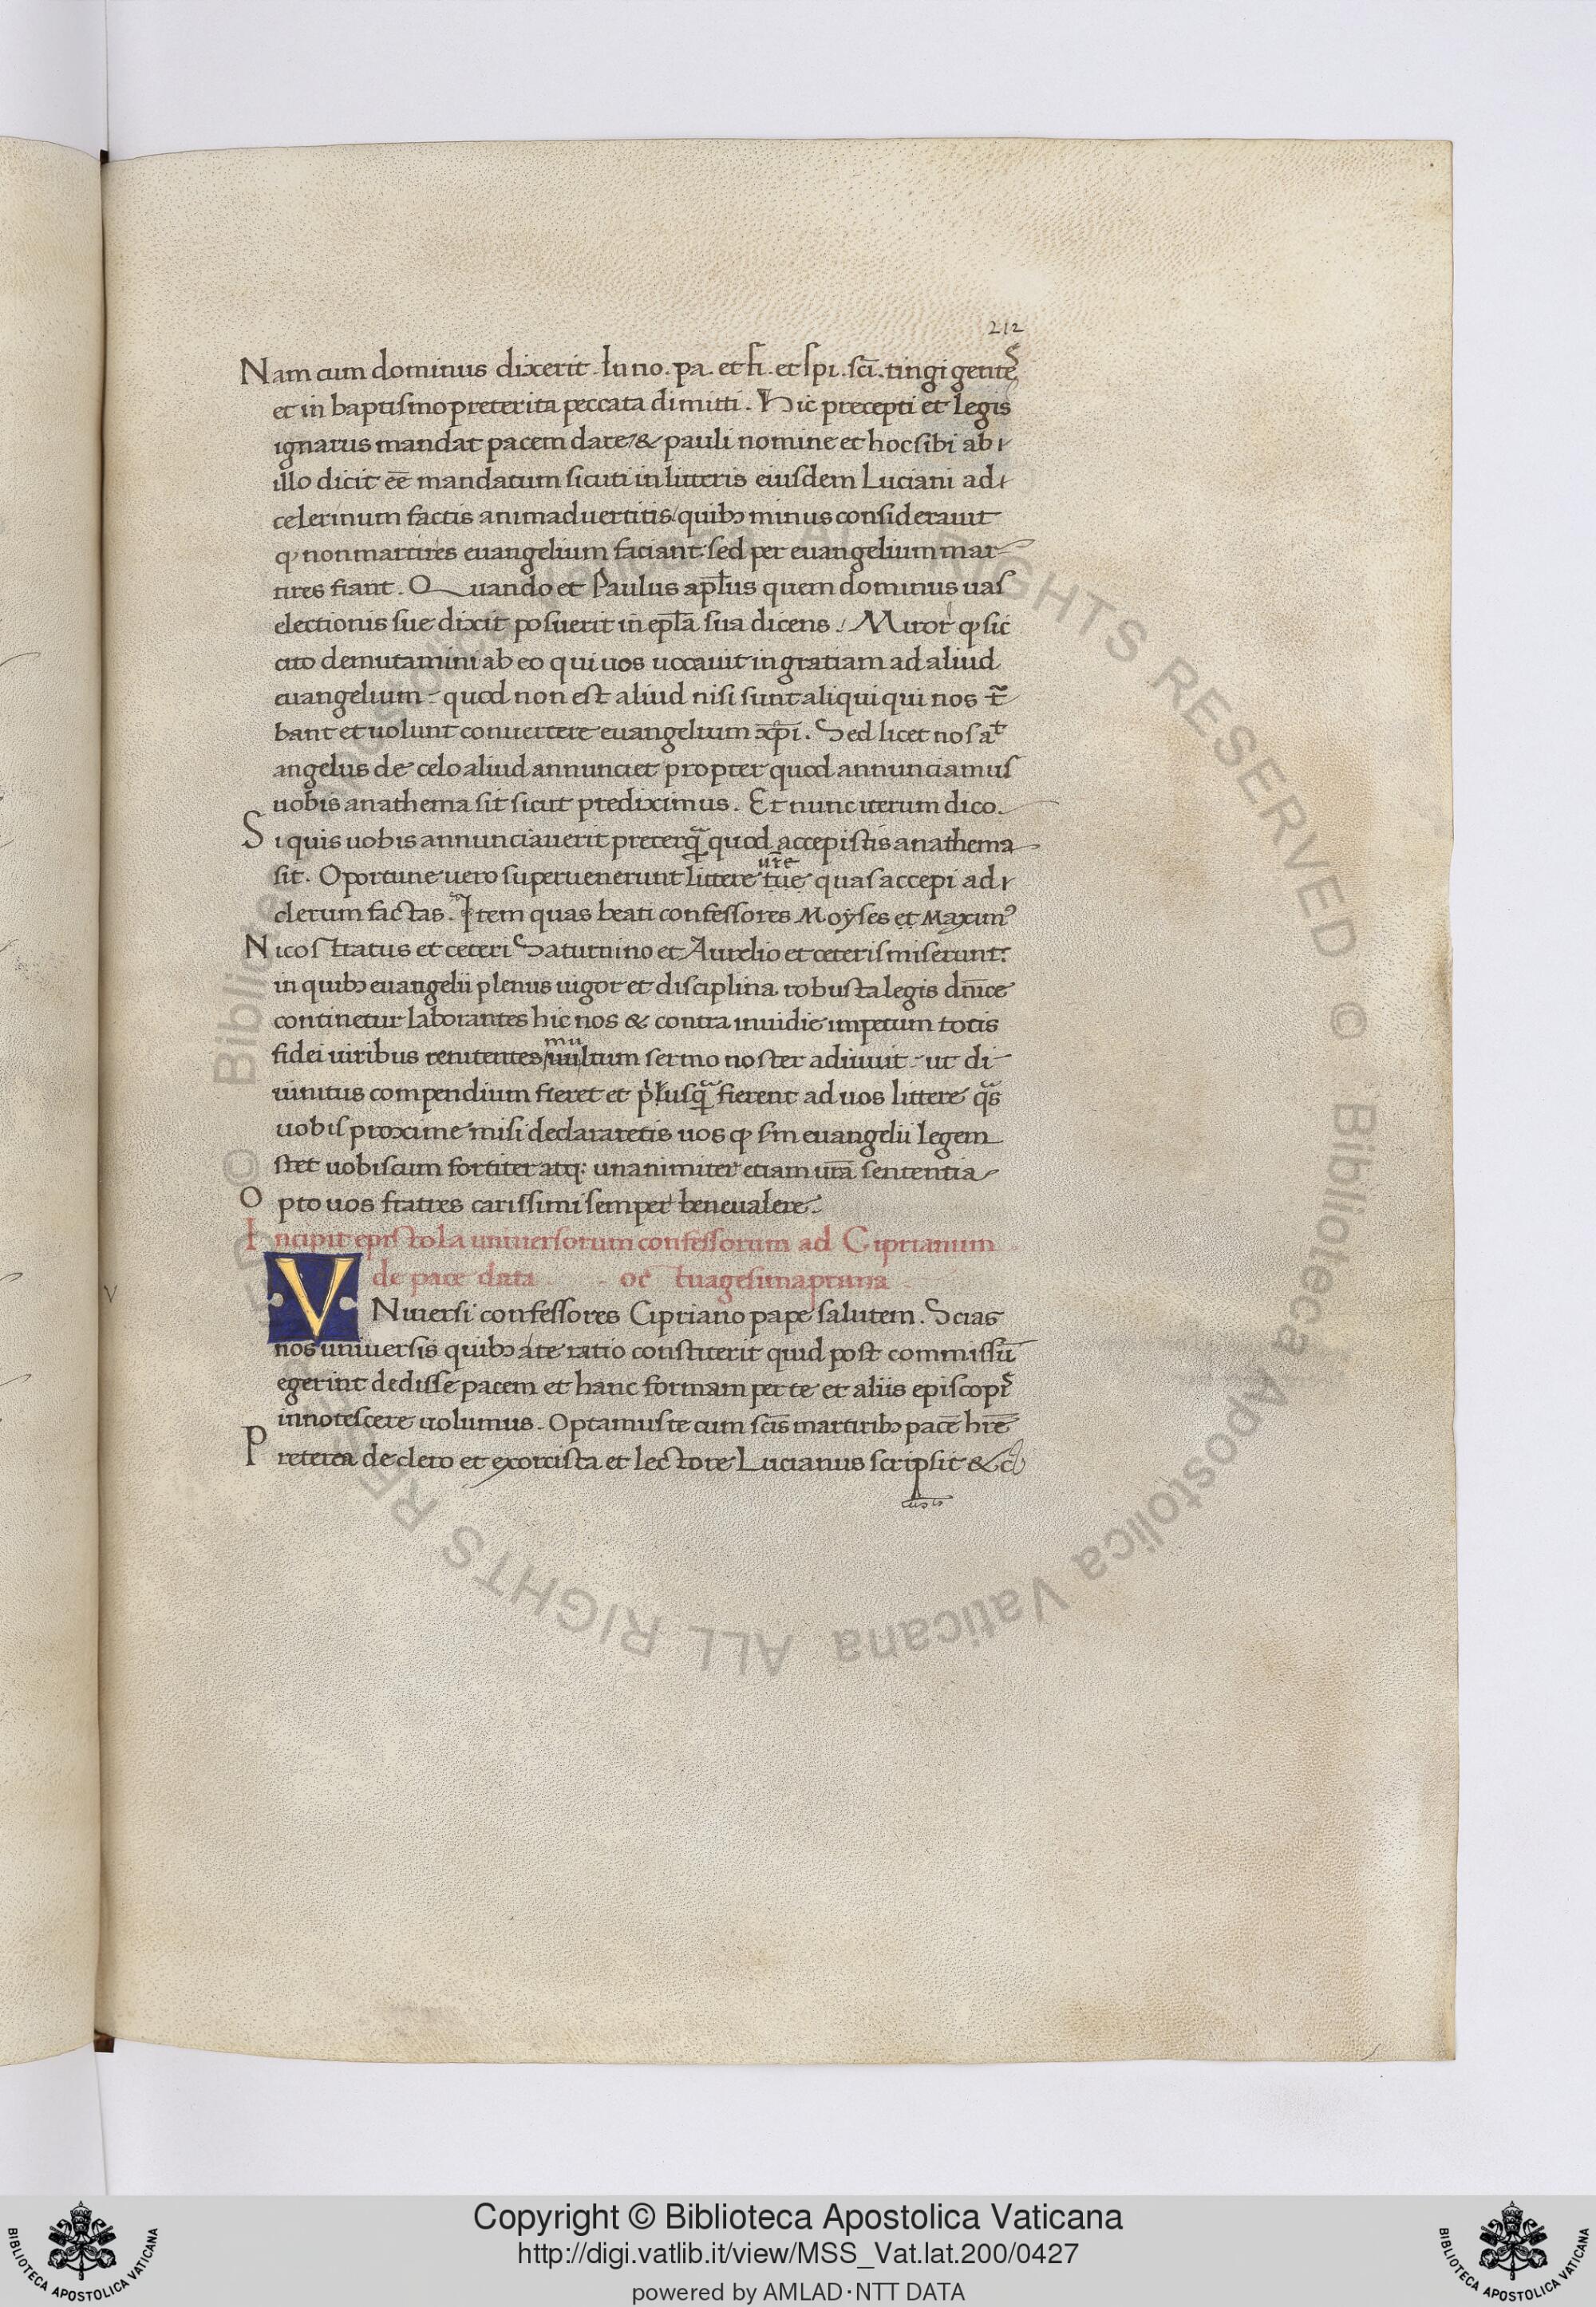 212
Nam cum dominus dixerit. In no. pa. et fi. et spi. sci. tingi gentes
et in baptismo preterita peccata dimitti. Hic precepti et legis
ignarus mandat pacem dare & pauli nomine et hoc sibi ab
illo dicit eē mandatum sicuti in litteris eiusdem Luciani ad
celerinum factis animaduertitis quibꝫ minus considerauit
ꝙ non martires euangelium faciant sed per euangelium mar-
tires fiant. Quando et Paulus apl̄us quem dominus uas
electionis sue dixit posuerit in epl̄a sua dicens. Miror ꝙ sic
cito demutamini ab eo qui uos uocauit in gratiam ad aliud
euangelium quod non est aliud nisi sunt aliqui qui nos t̄
bant et uolunt conuertere euangelium xp̄i. Sed licet nos at
angelus de celo aliud annunciet propter quod annunciamus
uobis anathema sit sicut prediximus. Et nunc iterum dico.
Si quis uobis annunciauerit preterꝗ quod accepistis anathema
ur̄e
sit. Oportune uero superuenerunt littere tue quas accepi ad
clerum factas. Item quas beati confessores Moyses et Maximꝰ
Nicostratus et ceteri Saturnino et Aurelio et ceteris miserunt:
in quibꝫ euangelii plenus uigor et disciplina robusta legis dn̄ice
continetur laborantes hic nos & contra inuidie impetum totis
mu
fidei uiribus renitentes uultum sermo noster adiuuit ut di-
uinitus compendium fieret et pͥusꝗ fierent ad uos littere ꝗs
uobis proxime misi declararetis uos ꝙ sm̄ euangelii legem
stet uobiscum fortiter atq: unanimiter etiam ur̄a sententia
Opto uos fratres carissimi semper bene ualere.
Incipit epistola uniuersorum confessorum ad Ciprianum
de pace data. octuagesima prima
v
VNiuersi confessores Cipriano pape salutem. Scias
nos uniuersis quibꝫ a te ratio constiterit quid post commissū
egerint dedisse pacem et hanc formam per te et aliis episcopis
innotescere uolumus. Optamus te cum scīs martiribꝫ pacē hr̄e
Preterea de clero et exorcista et lectore Lucianus scripsit &c
Copyright © Biblioteca Apostolica Vaticana
http://digi.vatlib.it/view/MSS_Vat.lat.200/0427
powered by AMLAD·NTT DATA
BIBLIOTECA APOSTOLICA VATICANA
BIBLIOTECA APOSTOLICA VATICANA
© Biblioteca Apostolica Vaticana ALL RIGHTS RESERVED © Biblioteca Apostolica Vaticana ALL RIGHTS RESERVED